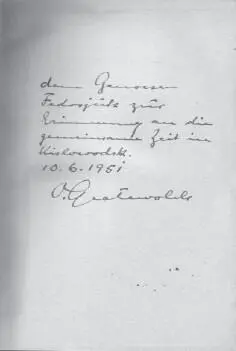 dem Genossen
Fedosjuk zur
Erinnerung an die
gemeinsame Zeit in
Kislowodsk.
10.6.1951
O. Grotewohl